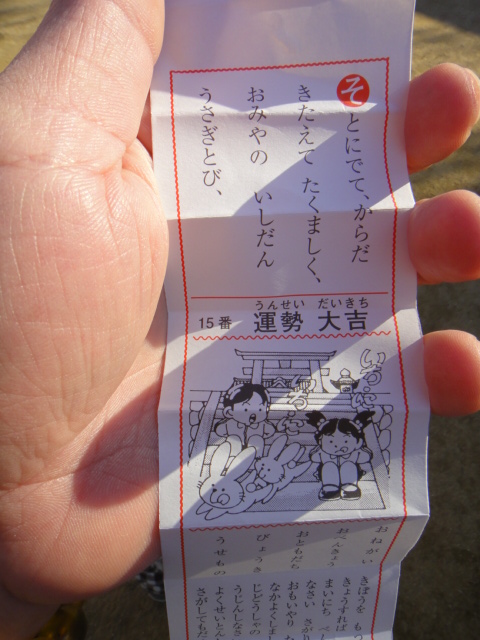 そとにでて、からだ
きたえて たくましく、
おみやの いしだん
うさぎとび、
うんせい だいきち
15番 運勢 大吉
いち、に
おねがい
おべんきょう
おともだち
びょうき
うせもの
きぼうを も
きょうすれば
まいにち べ
なさい さが
おもいやり
なかよくしま
じどうしゃの
うじんしなさ
よくせいとん
さがしてもだ